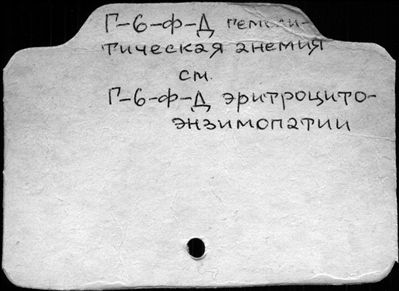 Г-6-Ф-Д гемоли-
тическая анемия
см.
Г-6-Ф-Д эритроцито-
энзимопатии